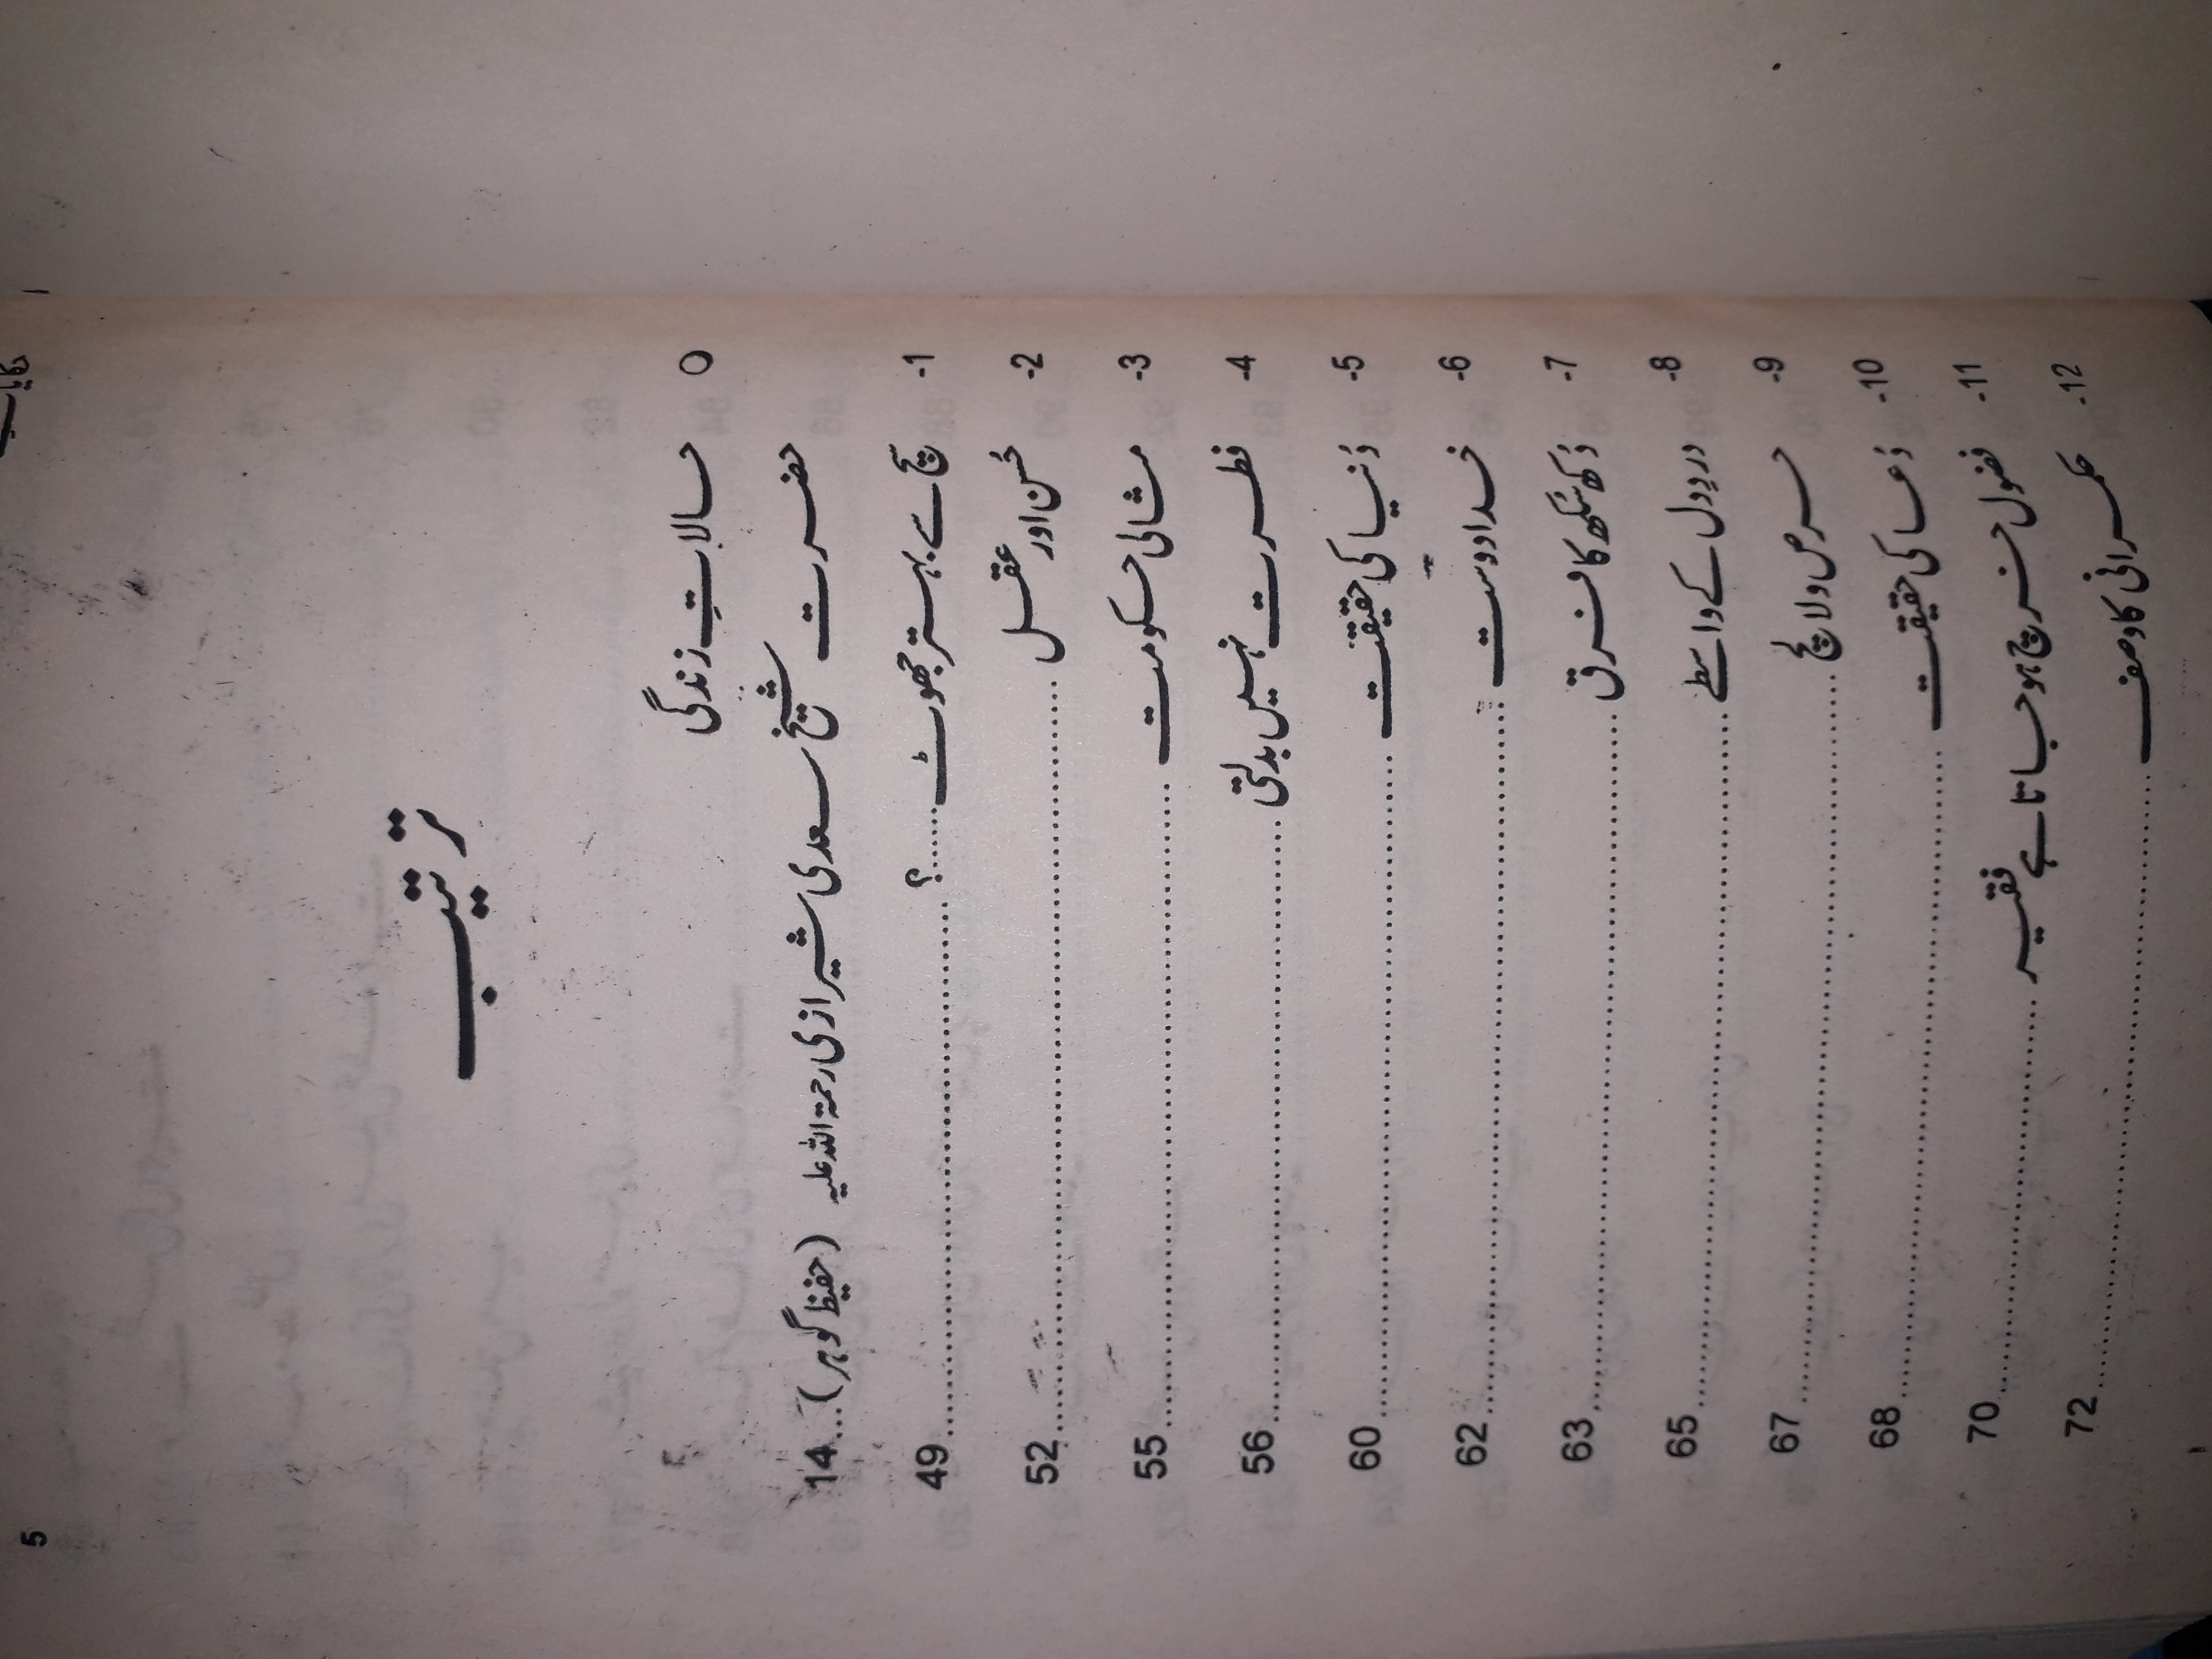 5
ترتیب
O حالاتِ زندگی
حضرت شیخ سعدی شیرازی رحمۃ اللہ علیہ (حفیظ گوہر)...14
1- سچ سے بہتر جھوٹ......؟ 49
2- حُسن اور عقل 52
3- مثالی حکومت 55
4- فطرت نہیں بدلتی 56
5- دُنیا کی حقیقت 60
6- خدا دوست 62
7- دُکھ سُکھ کا فرق 63
8- دردِ دل کے واسطے 65
9- حرص و لالچ 67
10- دُعا کی حقیقت 68
11- فضول خرچ ہو جاتا ہے فقیر 70
12- حکمرانی کا وصف 72